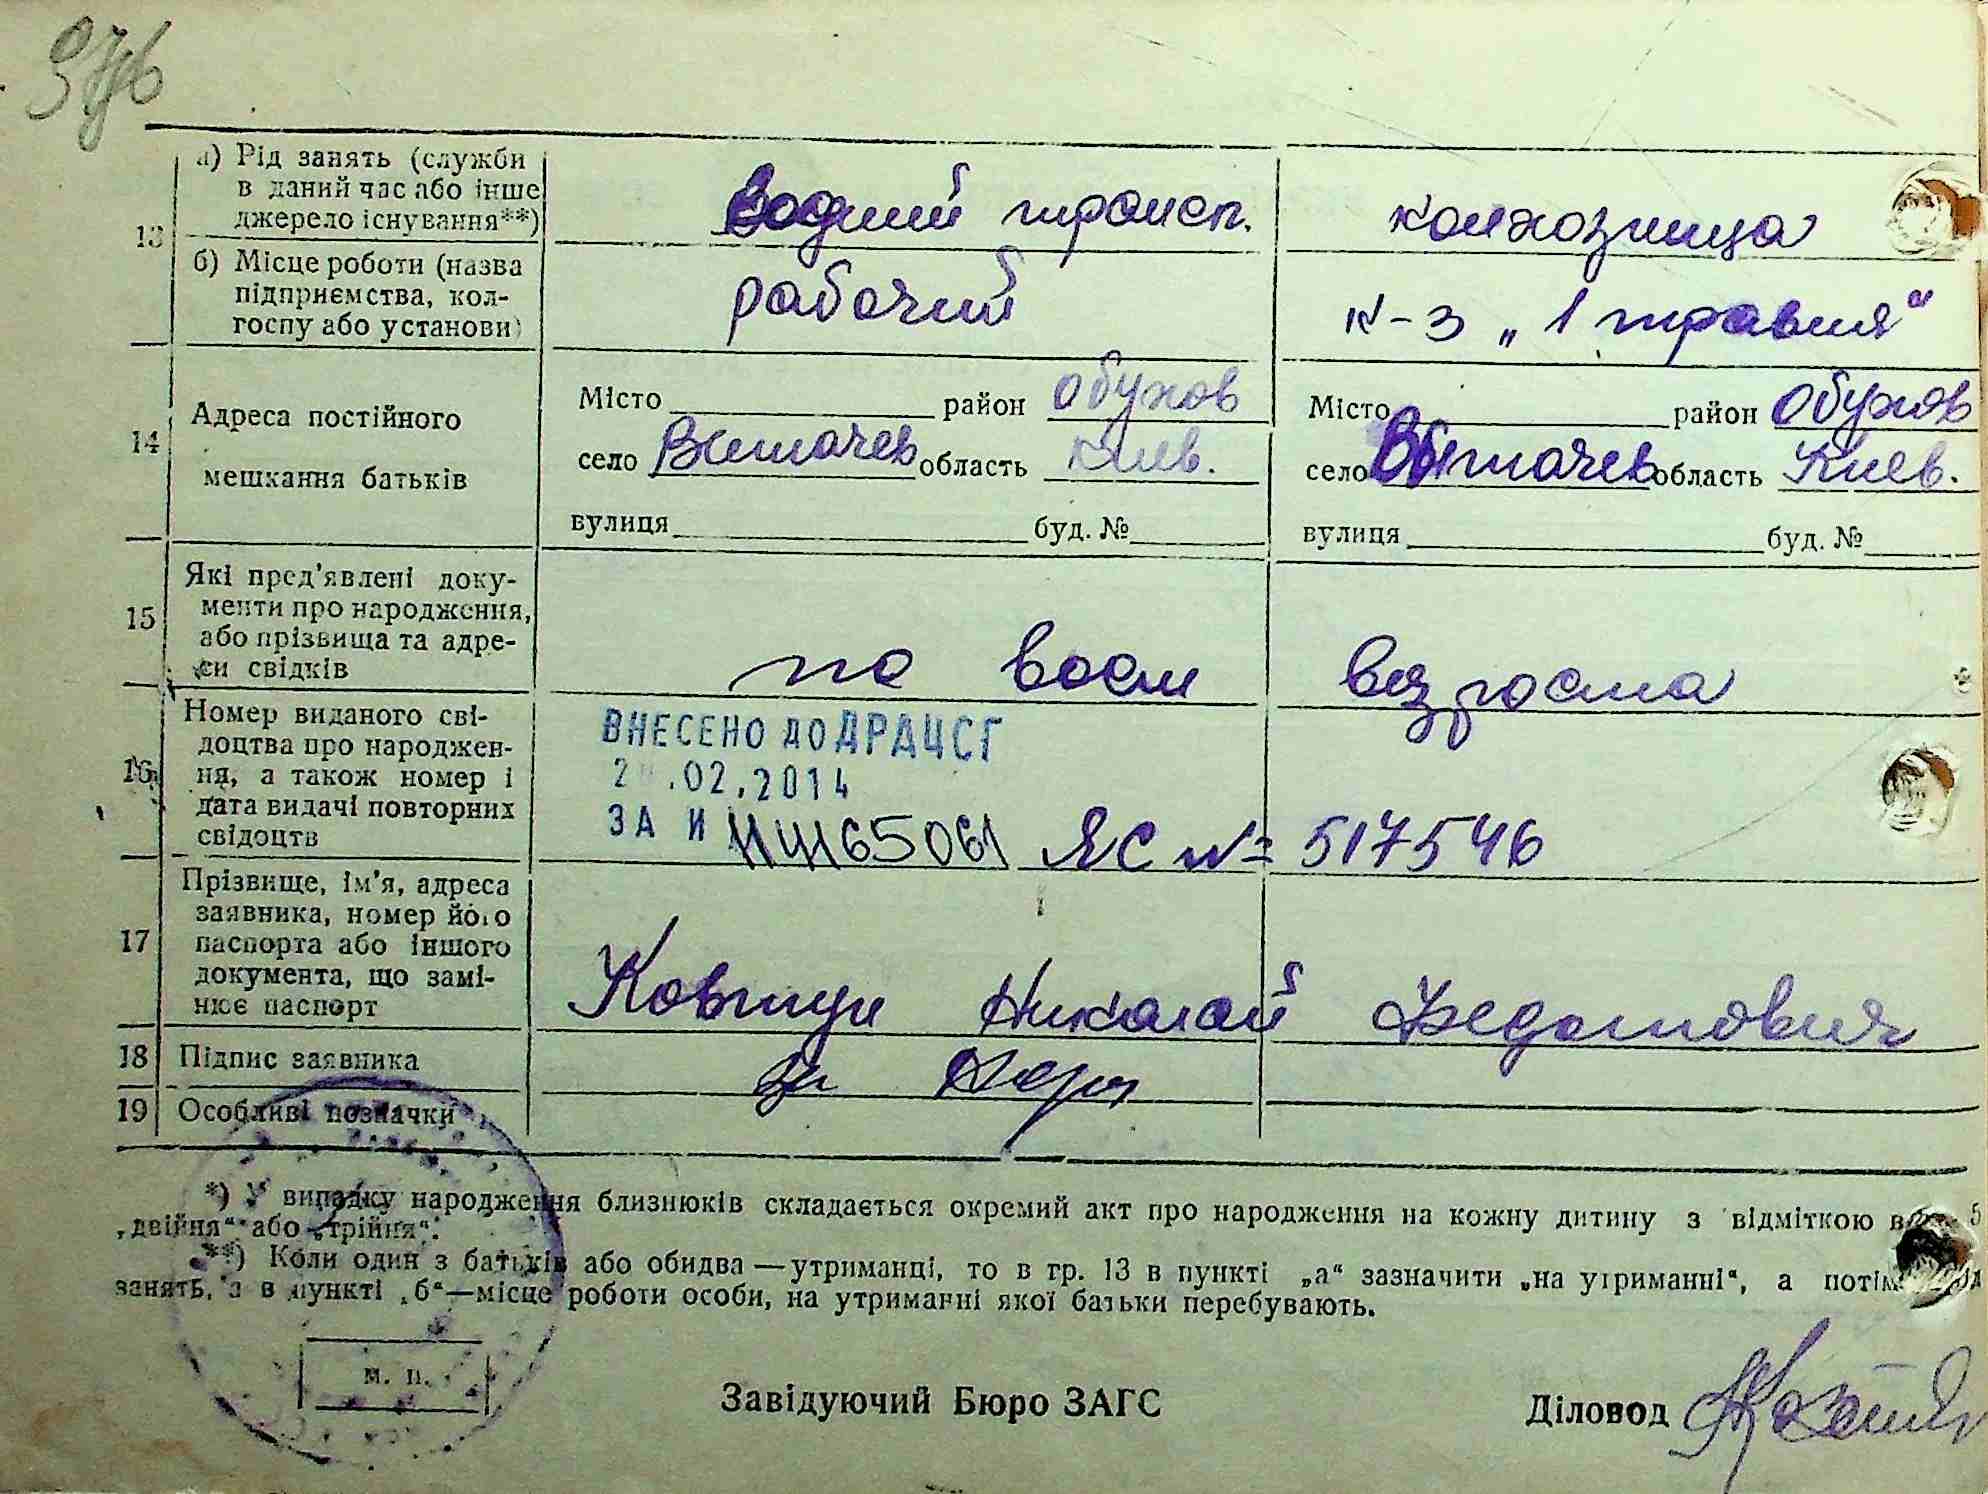 а) Рід занять (служби в даний час або інше джерело існування**)
водний трансп.
колхозница
13
б) Місце роботи (назва підприємства, колгоспу або установи)
рабочий
к-з „1 травня“
14
Адреса постійного мешкання батьків
Місто район Обухов
село Витачев область Киев.
вулиця буд. №
Місто район Обухов
село Витачев область Киев.
вулиця буд. №
15
Які пред'явлені документи про народження, або прізвища та адреси свідків
по восм возроста
16
Номер виданого свідоцтва про народження, а також номер і дата видачі повторних свідоцтв
ВНЕСЕНО ДО ДРАЦСГ
.02.2014
ЗА
ЯС № 517546
17
Прізвище, ім'я, адреса заявника, номер його паспорта або іншого документа, що замінює паспорт
Ковтун Николай Федотович
18
Підпис заявника
19
Особливі позначки
*) У випадку народження близнюків складається окремий акт про народження на кожну дитину з відміткою
„двійня“ або „трійня“.
**) Коли один з батьків або обидва — утриманці, то в гр. 13 в пункті „а“ зазначити „на утриманні“, а потім
занять, а в пункті „б“—місце роботи особи, на утриманні якої батьки перебувають.
м. п.
Завідуючий Бюро ЗАГС
Діловод